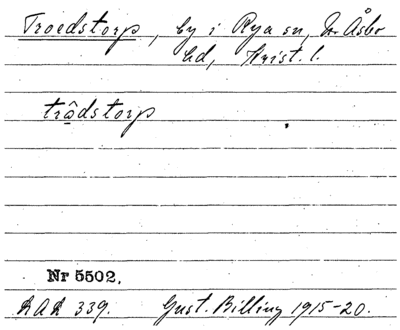 Troedstorp, by i Rya sn, N. Åsbo
hd, Krist. l.
trôdstorp
Nr 5502.
LAL 339. Gust. Billing 1915-20.